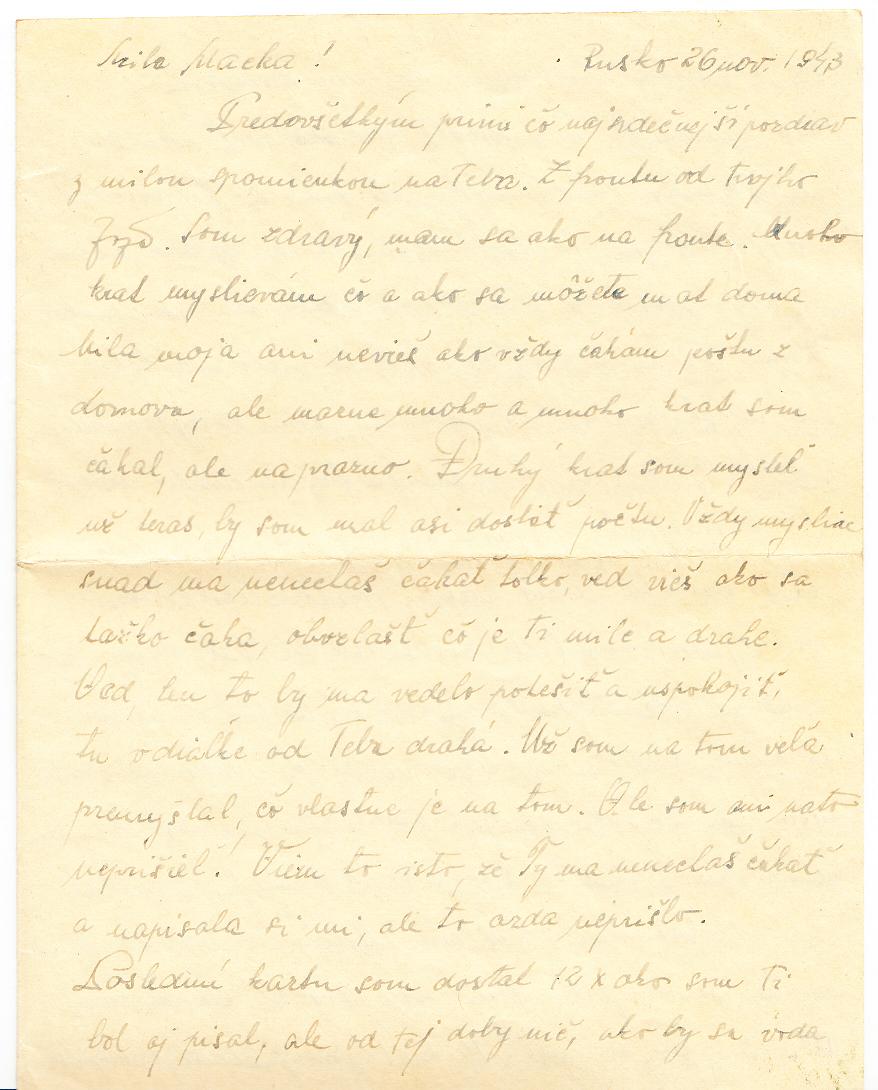 Milá Macka! Rusko 26 nov. 1943
Predovšetkým primi čo najsrdečnejší pozdrav
z milou spomienkou na Teba. Z frontu od tvojho
Som zdravý, mam sa ako na fronte. Mnoho
krat myslievám čo a ako sa môžete mat doma
Mila moja ani nevieš ako vždy čakám poštu z
domova, ale marne mnoho a mnoho krat som
čakal, ale naprazno. Druhý krat som myslel
už teras, by som mal asi dostať poštu. Vždy mysliac
snad ma nenechaš čakať tolko, ved vieš ako sa
tažko čaka, obvzlašť čo je Ti mile a drahe.
Ved, len to by ma vedelo potešiť a uspokojiť,
tu vdialke od Teba drahá. Už som na tom veľa
premyšlal, čo vlastne je na tom. Ale som ani nato
neprišiel! Viem to isto, že Ty ma nenechaš čakať
a napisala si mi, ale to azda neprišlo.
Poslednú kartu som dostal 12 X ako som Ti
bol aj pisal, ale od tej doby nič, ako by sa voda